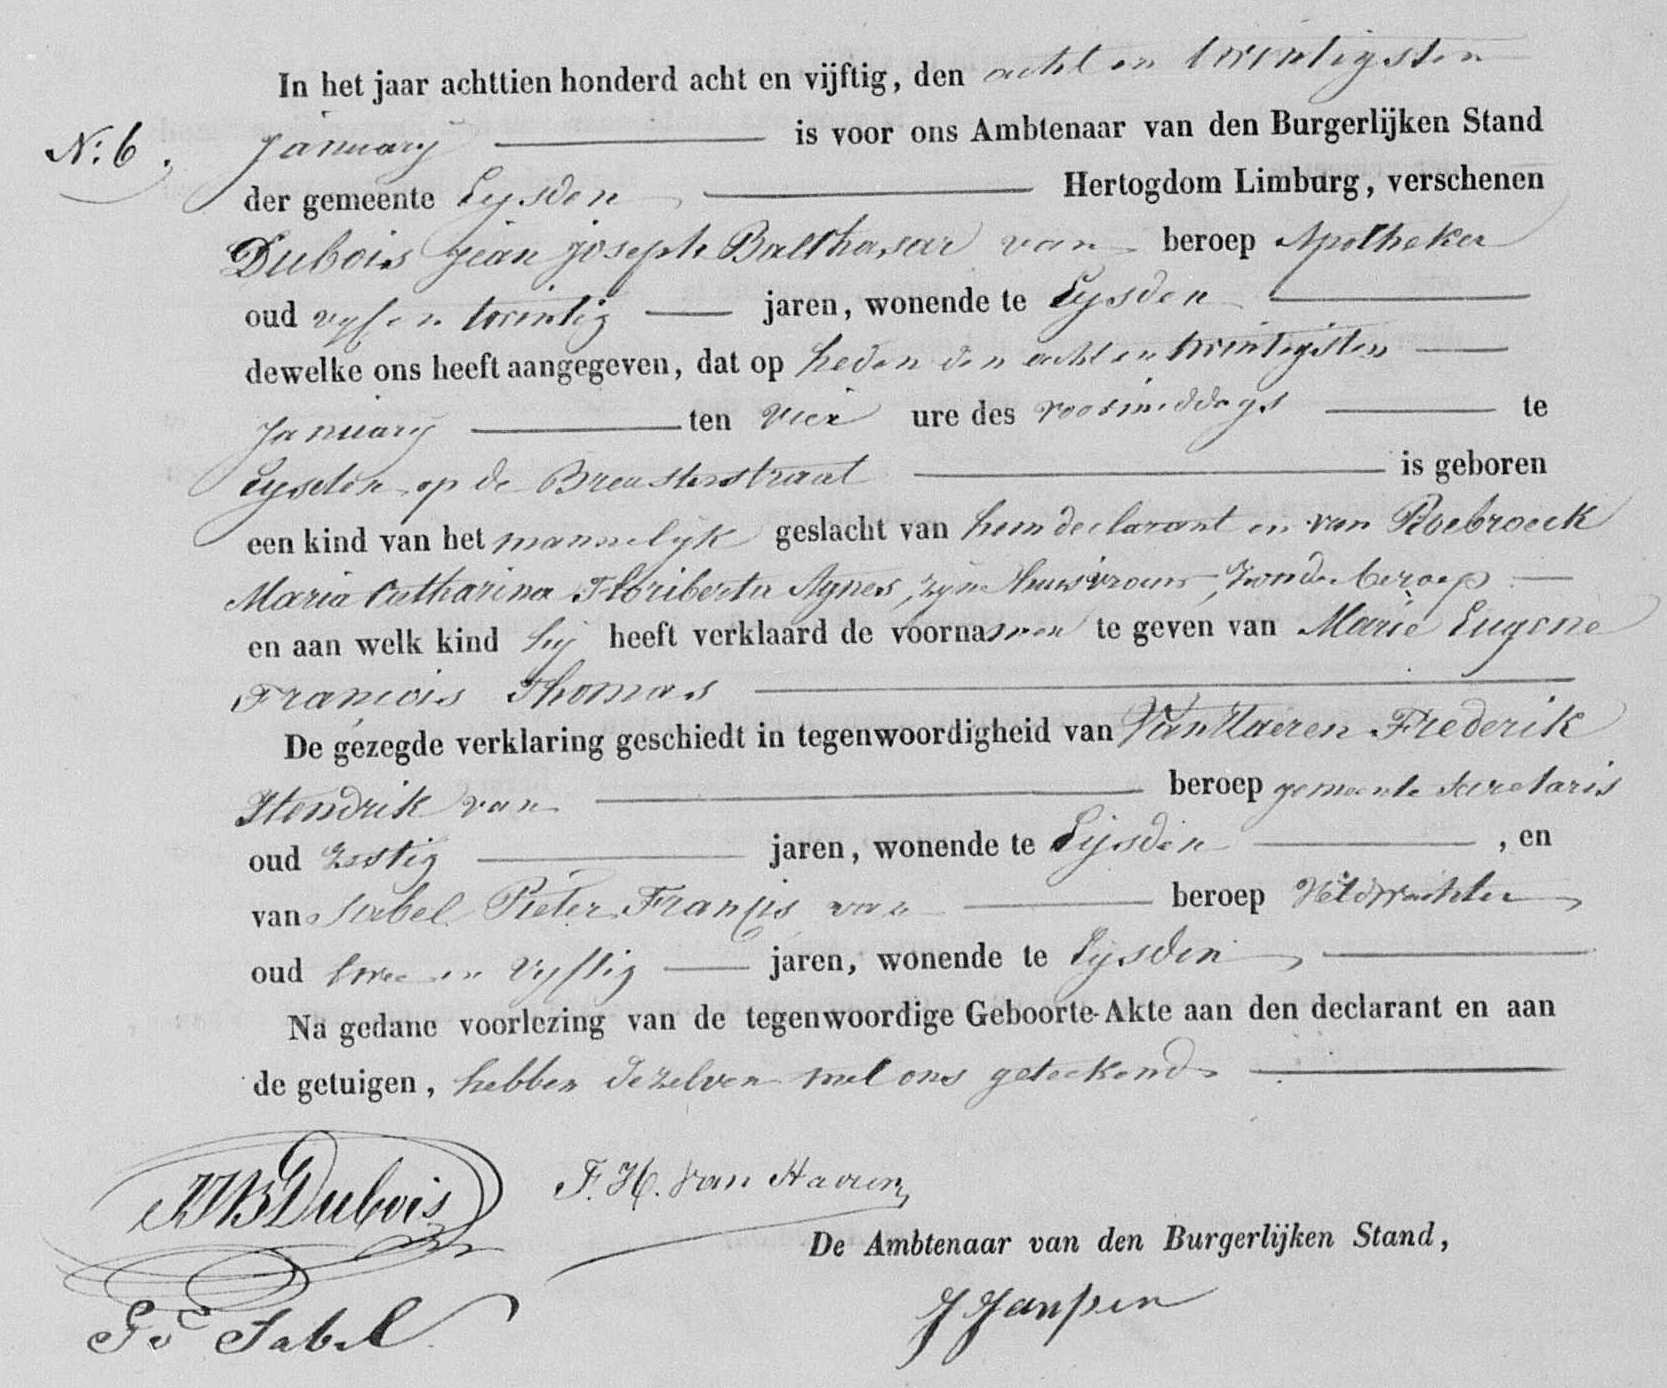 In het jaar achttien honderd acht en vijftig, den acht en twintigsten
N: 6. January is voor ons Ambtenaar van den Burgerlijken Stand
der gemeente Eysden Hertogdom Limburg, verschenen
Dubois Jean Joseph Balthasar van beroep Apotheker
oud vyf en twintig jaren, wonende te Eysden
dewelke ons heeft aangegeven, dat op heden den acht en twintigsten
January ten vier ure des voormiddags te
Eysden op de Breusterstraat is geboren
een kind van het mannelyk geslacht van hem declarant en van Roebroeck
Maria Catharina Floriberta Agnes, zyne Huisvrouw, zonder beroep
en aan welk kind hij heeft verklaard de voornamen te geven van Marie Eugene
François Thomas
De gezegde verklaring geschiedt in tegenwoordigheid van Van Haeren Frederik
Hendrik van beroep gemeente secretaris
oud zestig jaren, wonende te Eijsden , en
van Sabel Pieter Francis van beroep Veldwachter
oud twee en vyftig jaren, wonende te Eijsden
Na gedane voorlezing van de tegenwoordige Geboorte-Akte aan den declarant en aan
de getuigen, hebben dezelven met ons geteekend
JJB Dubois F. H. Van Haeren
De Ambtenaar van den Burgerlijken Stand,
Sabel J Janssen